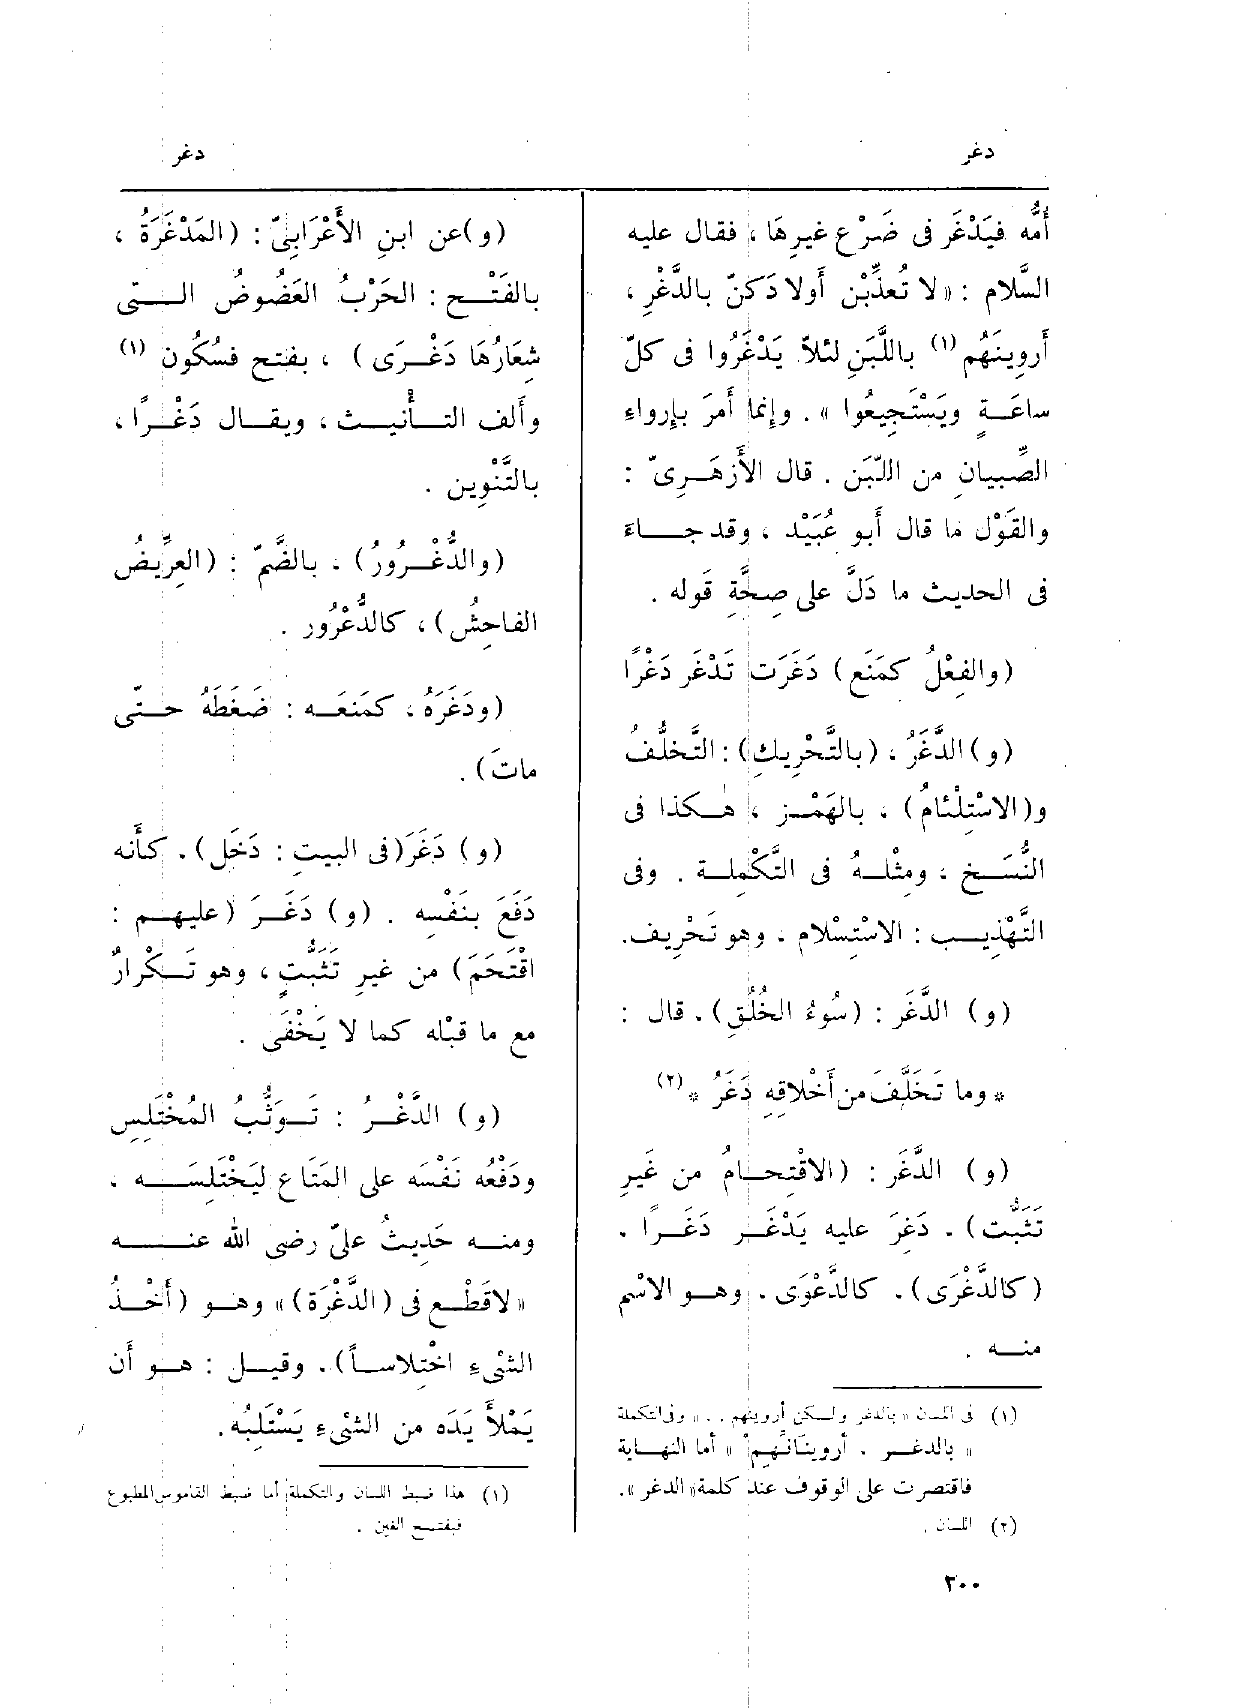 دغر
دغر
أُمُّه فيَدْغَر فى ضَرْع غيرِهَا ، فقال عليه
السَّلام : « لا تُعذِّبْن أَولادَكنّ بالدَّغْرِ ،
أَروِينَهُم (١) باللَّبَنِ لئلاّ يَدْغَرُوا فى كلّ
ساعَـةٍ ويَسْتَجِيعُوا » . وإنما أَمَرَ بإرواءِ
الصِّبيانِ من اللّبَن . قال الأَزهَـرِىّ :
والقَوْل ما قال أَبو عُبَيْد ، وقد جـاءَ
فى الحديث ما دَلَّ على صِحَّةِ قَوله .
(والفِعْلُ كمَنَع) دَغَرَت تَدْغَر دَغْرًا
(و) الدَّغَرُ ، (بالتَّحْرِيك) : التَّخلُّفُ
و(الاسْتِلْئامُ) ، بالهَمْـز ، هٰـكذا فى
النُّسَـخ ، ومِثْلـهُ فى التَّكْمِلـة . وفى
التَّهْذِيـب : الاسْتِسْلام ، وهو تَحْرِيف.
(و) الدَّغَر : (سُوءُ الخُلُقِ) . قال :
* وما تَخَلَّفَ من أَخْلاقِهِ دَغَرُ * (٢)
(و) الدَّغَر : (الاقْتِحـامُ من غَيرِ
تَثَبُّت) . دَغِرَ عليه يَدْغَـر دَغَـرًا .
(كالدَّغْرَى) . كالدَّعْوَى . وهـو الاسْم
منـه .
(١) فى اللسان « بالدغر ولـكن أَروينهم . . » وفى التكملة
« بالدغـر . أَرويتَانَّهِمُ » أما النهـاية
فاقتصرت على الوقوف عند كلمة « الدغر » .
(٢) اللسان .
(و) عن ابنِ الأَعْرَابىّ : (المَدْغَرَةُ ،
بالفَتْـح : الحَرْبُ العَضُوضُ الـتى
شِعَارُهَا دَغْـرَى ) ، بفتح فسُكُون (١)
وأَلف التـأْنيث ، ويقـال دَغْـرًا ،
بالتَّنْوِين .
(والدُّغْـرُورُ) ، بالضّمّ : (العِرِّيضُ
الفاحِشُ) ، كالدُّعْرُور .
(ودَغَرَهُ ، كمَنعَـه : ضَغَطَهُ حـتَّى
ماتَ) .
(و) دَغَرَ (فى البيتِ : دَخَل) . كأَنه
دَفَعَ بنَفْسِه . (و) دَغَـرَ (عليهـم :
اقْتَحَمَ) من غيرِ تَثَبُّتٍ ، وهو تَـكْرارٌ
مع ما قَبْله كما لا يَخْفَى .
(و) الدَّغْـرُ : تَـوَثُّبُ المُخْتَلِسِ
ودَفْعُه نَفْسَه على المَتَاع ليَخْتَلِسَـه ،
ومنـه حَدِيثُ علىّ رضى الله عنـه
« لا قَطْـع فى (الدَّغْرَة) » وهـو (أَخْـذُ
الشىْءِ اخْتِلاسـاً) . وقيـل : هـو أَن
يَمْلأَ يَدَه من الشىْءِ يَسْتَلِبُه.
(١) هذا ضبط اللسان والتكملة أما ضبط القاموس المطبوع
فبفتـح الغين .
٣٠٠